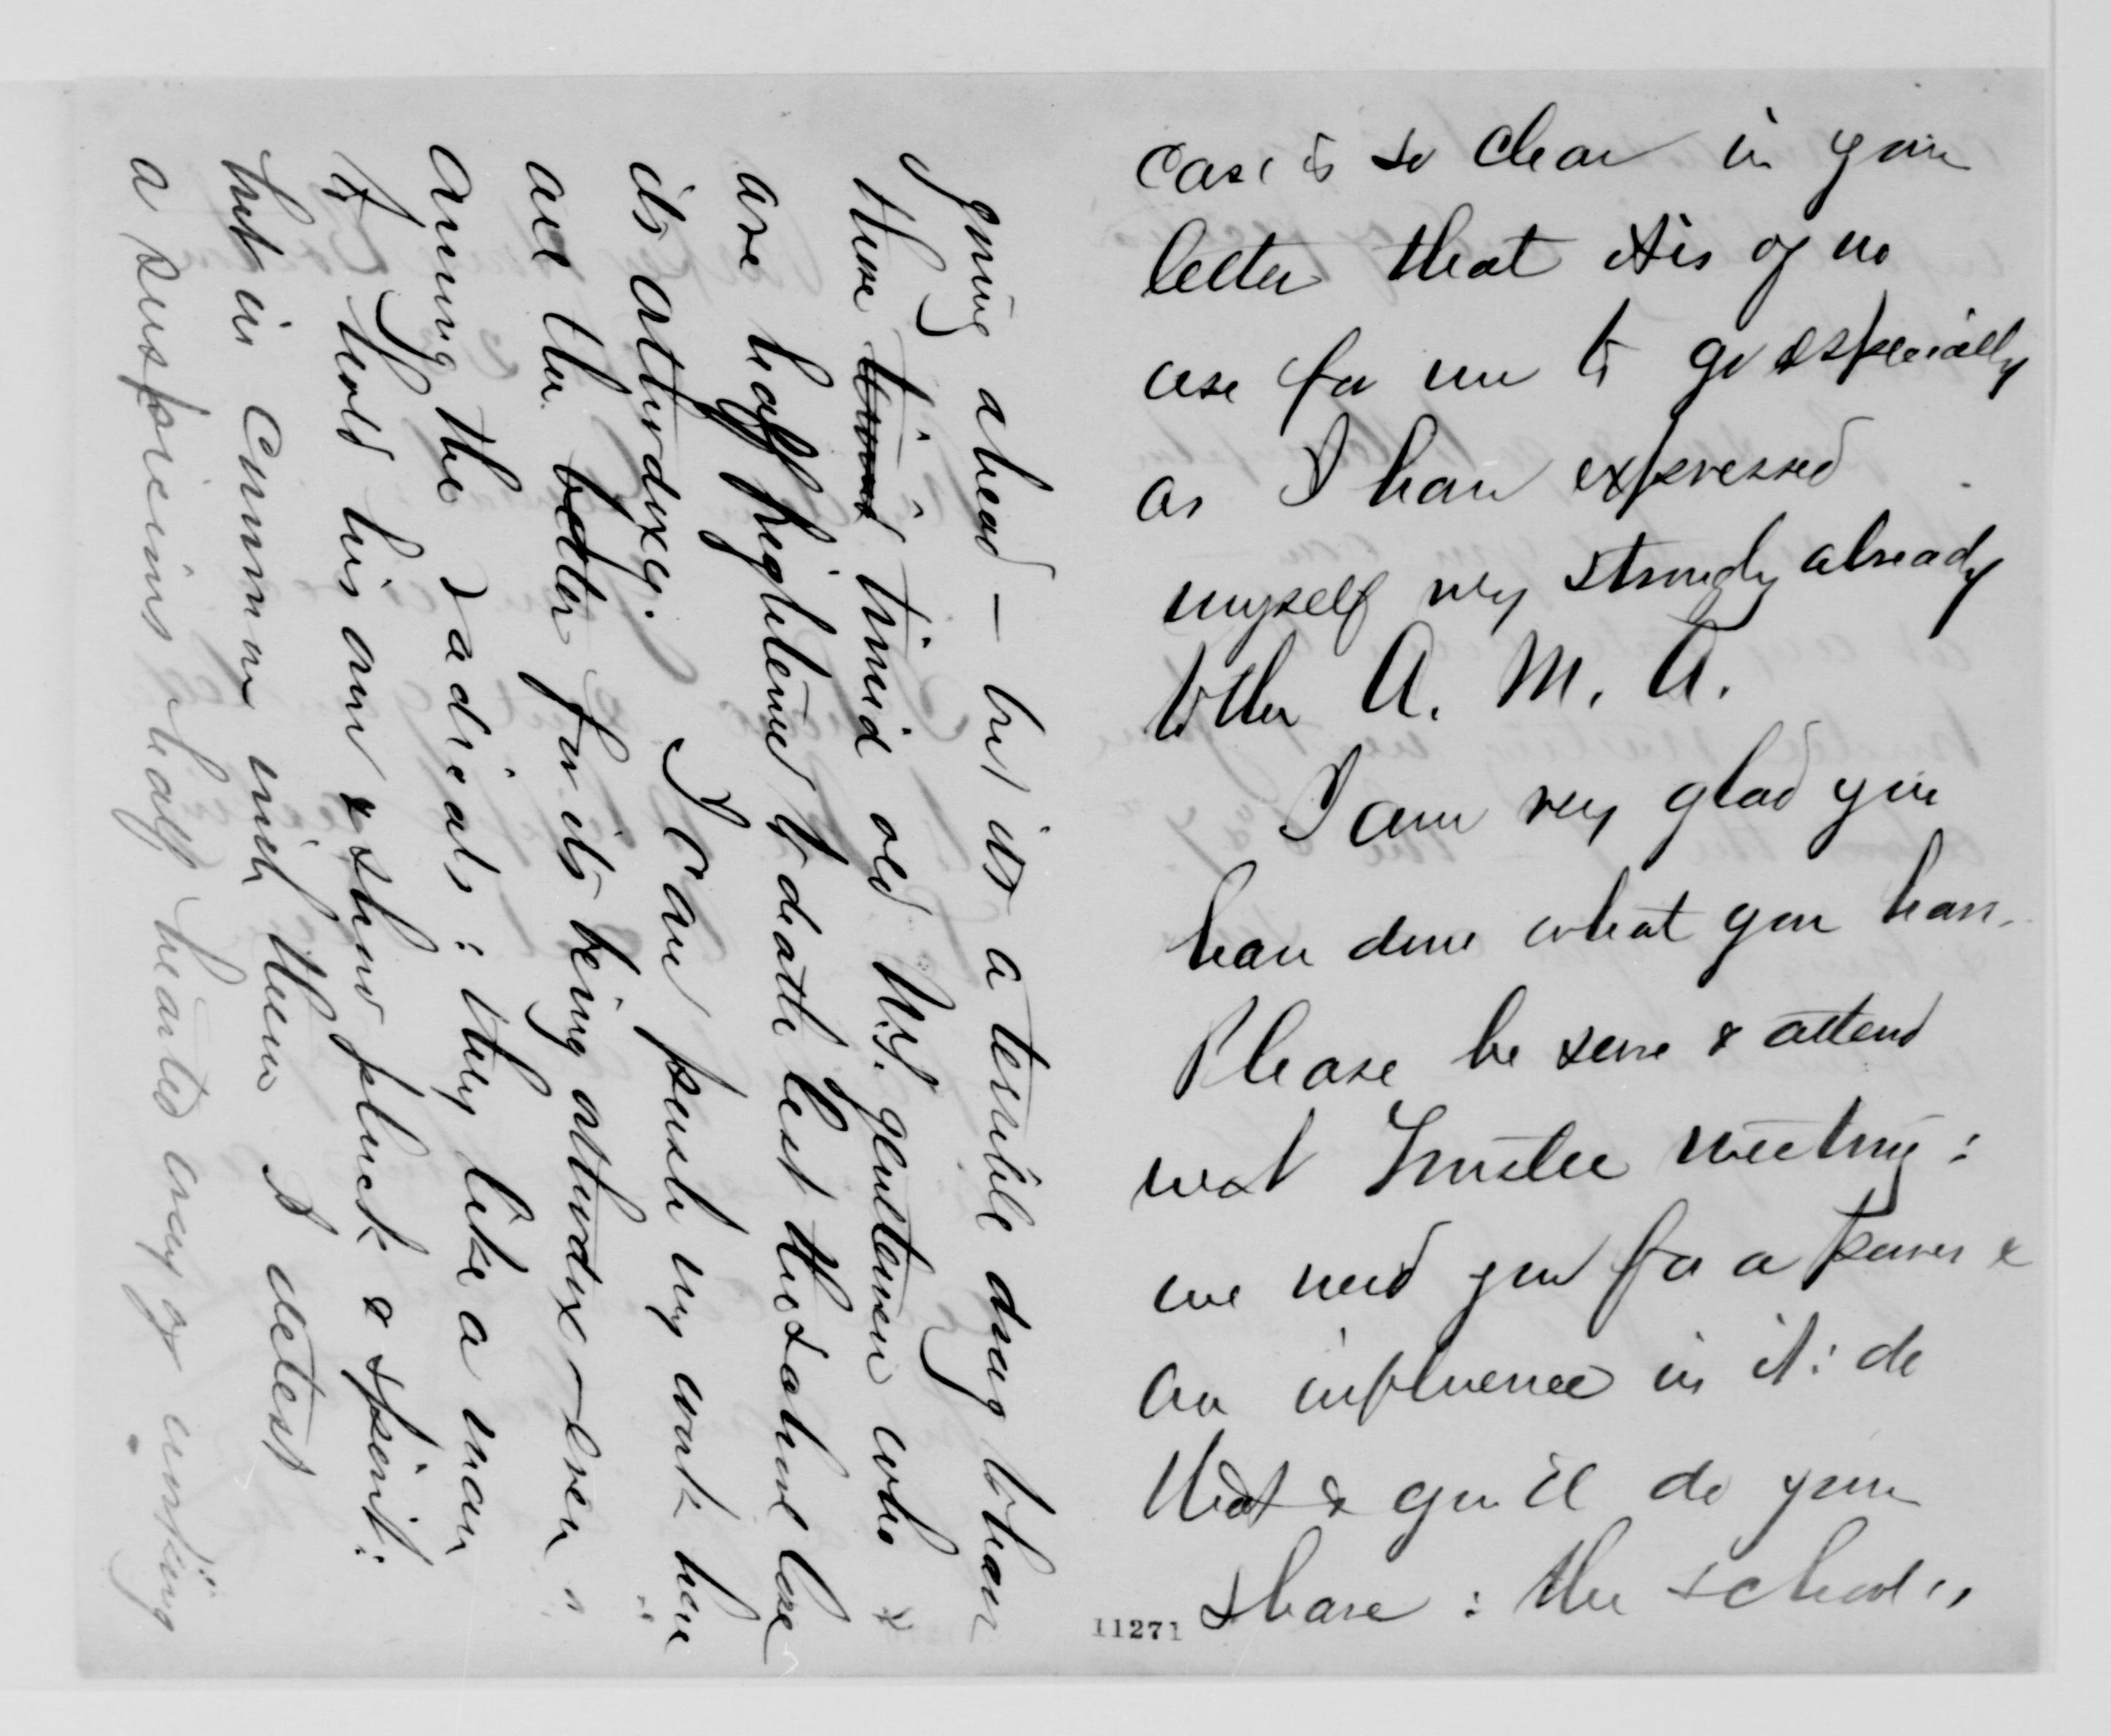 case is so clear in your
letter that it is of no
use for me to go especially
as I have expressed
myself very strongly already
to the A. M. A.
I am very glad you
have done what you have.
Please be sure & attend
next Trustee meeting:
we need you for a power &
an influence in it: do
that & you'll do your
share: the school is
11271
going ahead — but its a terrible drag to have
these timid old N.Y. gentlemen who
are half frightened to death lest the school lose
its orthodoxy. I can push my work here
all the better for its being orthodox — even
among the radicals: they like a man
to hold his own & show pluck & spirit:
but in common with them I detest
a suspicious half hearted way of working